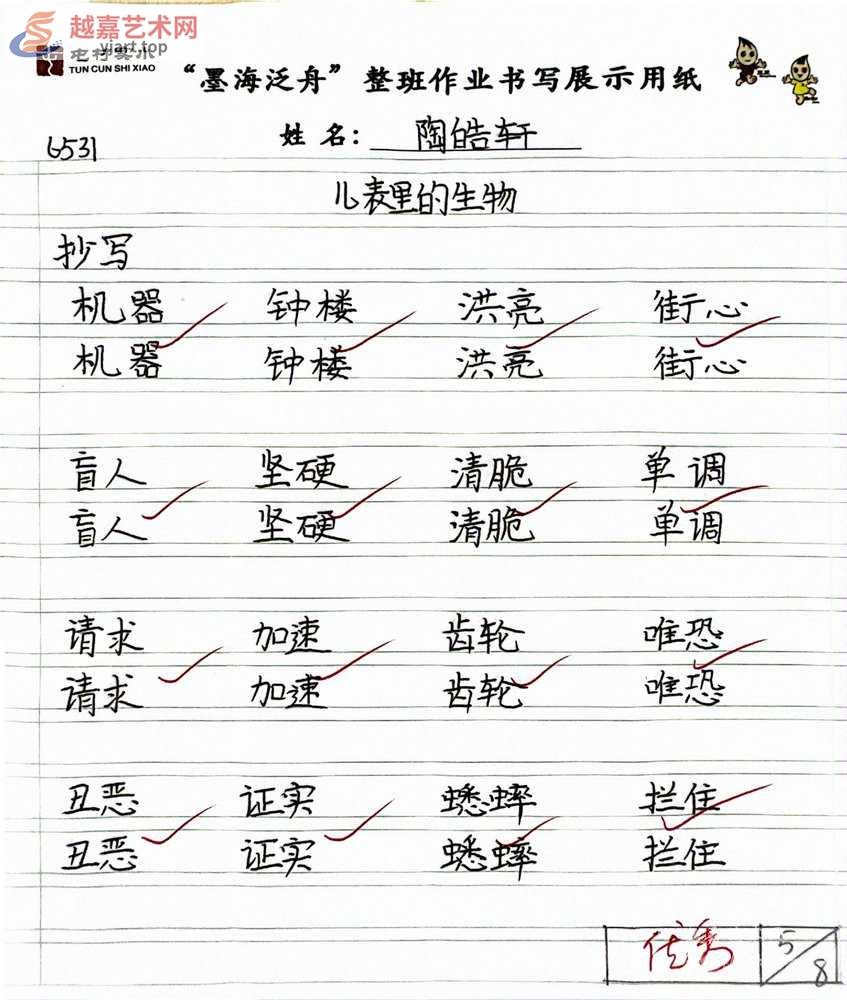 越嘉艺术网
yjart.top
屯村实小
TUN CUN SHI XIAO
“墨海泛舟”整班作业书写展示用纸
6531
姓名：陶皓轩
儿表里的生物
抄写
机器 钟楼 洪亮 街心
机器 钟楼 洪亮 街心
盲人 坚硬 清脆 单调
盲人 坚硬 清脆 单调
请求 加速 齿轮 唯恐
请求 加速 齿轮 唯恐
丑恶 证实 蟋蟀 拦住
丑恶 证实 蟋蟀 拦住
优秀 5/8